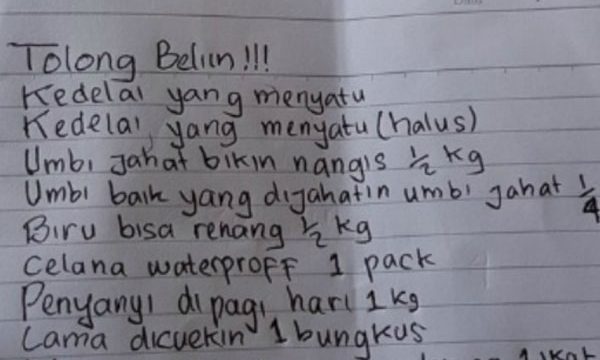 Tolong Beliin!!!
Kedelai yang menyatu
Kedelai yang menyatu (halus)
Umbi jahat bikin nangis ½ kg
Umbi baik yang dijahatin umbi jahat ¼
Biru bisa renang ½ kg
Celana waterproff 1 pack
Penyanyi di pagi hari 1 kg
Lama dicuekin 1 bungkus
1 ikat